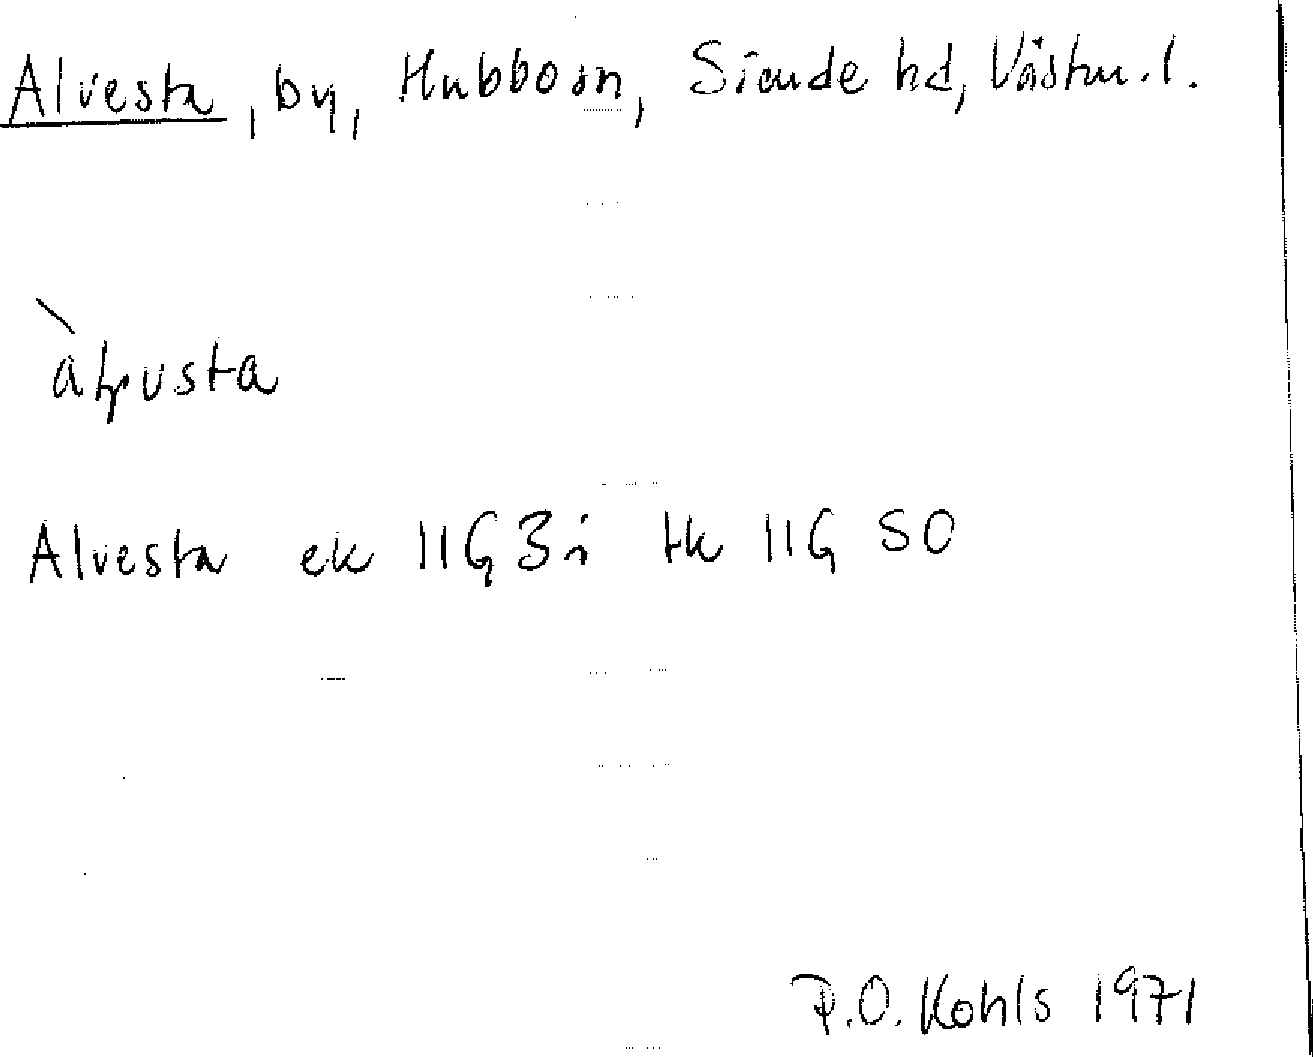 Alvesta, by, Hubbo sn, Siende hd, Västm.l.
Alvesta ek 11G 3i tk 11G SO
P.O. Kohls 1971